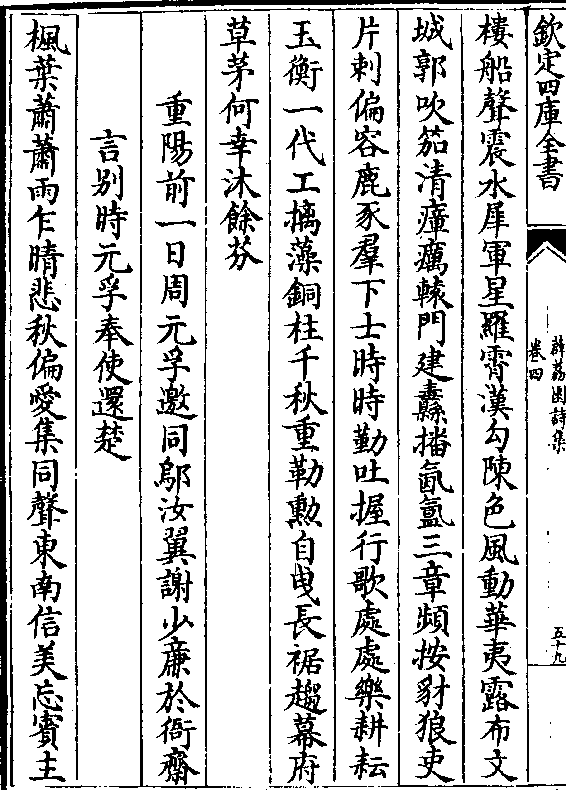 欽定四庫全書
薜荔園詩集
卷四
五十九
樓船聲震水犀軍星羅霄漢勾陳色風動華夷露布文
城郭吹笳清瘴癘轅門建纛播氤氳三章頻按豺狼吏
片刺偏容鹿豕羣下士時時勤吐握行歌處處樂耕耘
玉衡一代工摛藻銅柱千秋重勒勲自曳長裾趨幕府
草茅何幸沐餘芬
重陽前一日周元孚邀同鄔汝翼謝少廉於衙齋
言别時元孚奉使還楚
楓葉蕭蕭雨乍晴悲秋偏愛集同聲東南信美忘賓主